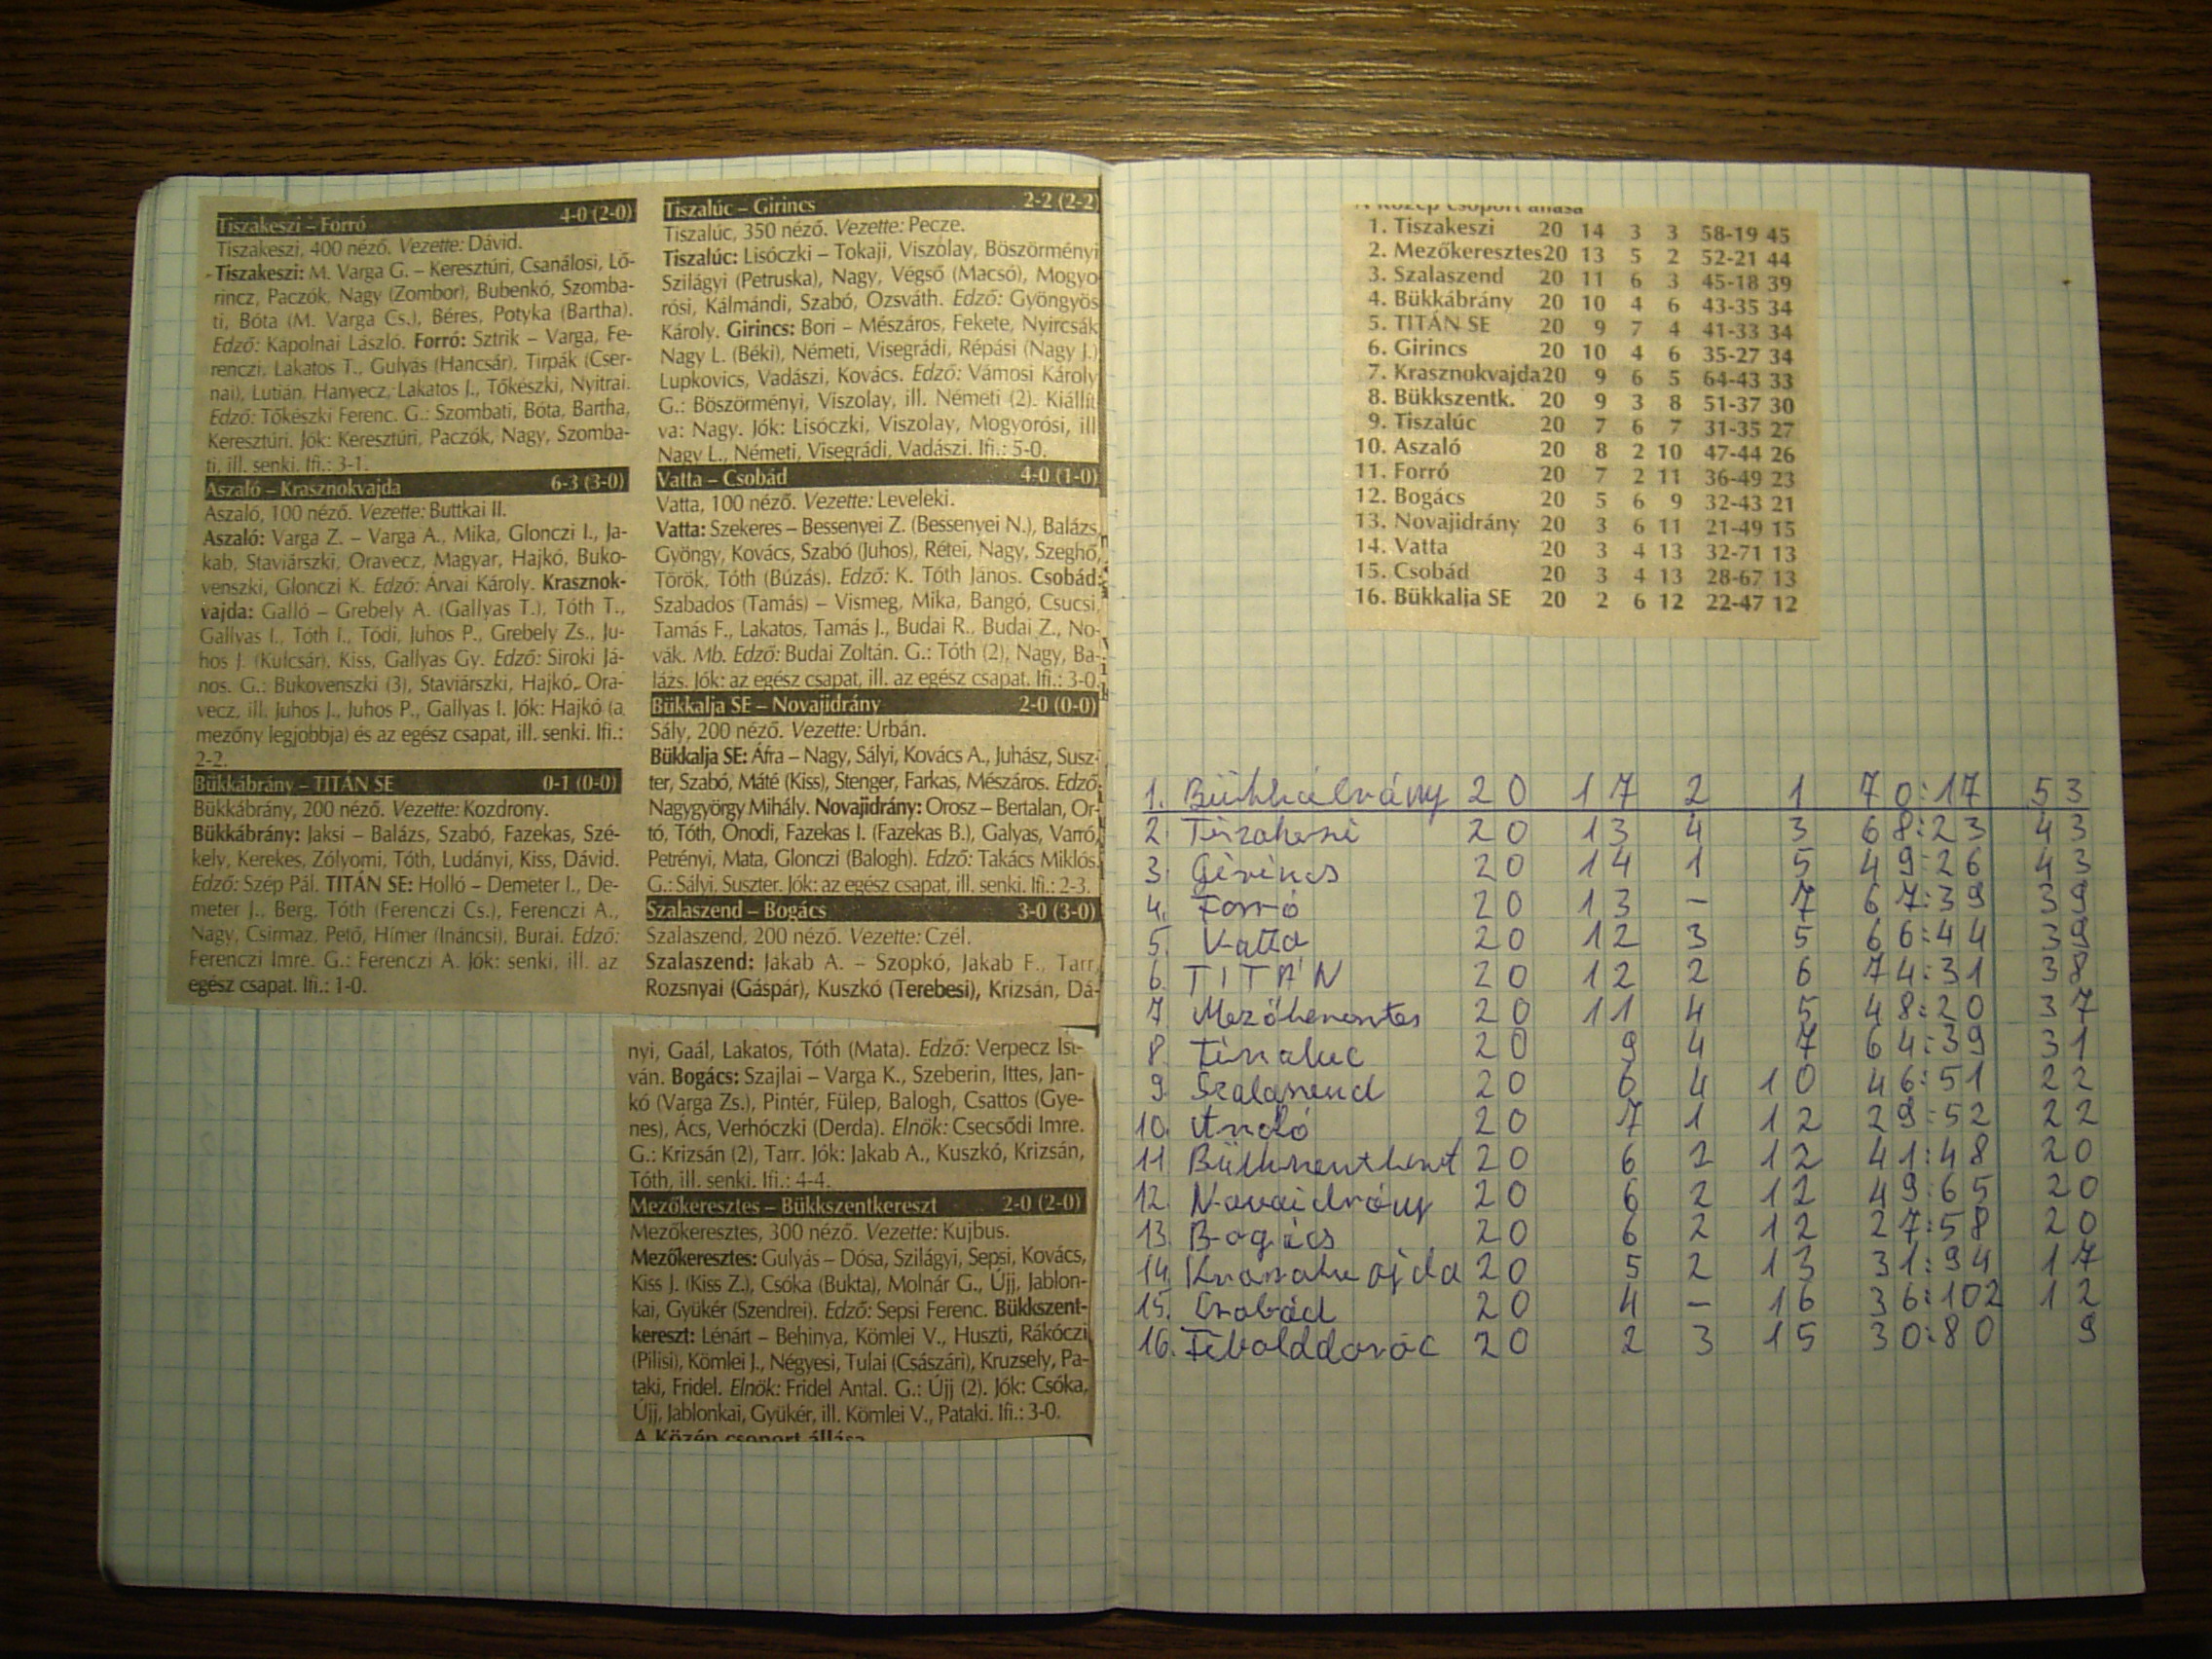 Tiszakeszi – Forró 4-0 (2-0)
Tiszakeszi, 400 néző. Vezette: Dávid.
Tiszakeszi: M. Varga G. – Keresztúri, Csanálosi, Lő-
rincz, Paczók, Nagy (Zombor), Bubenkó, Szomba-
ti, Bóta (M. Varga Cs.), Béres, Potyka (Bartha).
Edző: Kapolnai László. Forró: Sztrik – Varga, Fe-
renczi, Lakatos T., Gulyás (Hancsár), Tirpák (Cser-
nai), Lutián, Hanyecz, Lakatos J., Tőkészki, Nyitrai.
Edző: Tőkészki Ferenc. G.: Szombati, Bóta, Bartha,
Keresztúri. Jók: Keresztúri, Paczók, Nagy, Szomba-
ti, ill. senki. Ifi.: 3-1.
Aszaló – Krasznokvajda 6-3 (3-0)
Aszaló, 100 néző. Vezette: Buttkai II.
Aszaló: Varga Z. – Varga A., Mika, Glonczi I., Ja-
kab, Staviárszki, Oravecz, Magyar, Hajkó, Buko-
venszki, Glonczi K. Edző: Árvai Károly. Krasznok-
vajda: Galló – Grebely A. (Gallyas T.), Tóth T.,
Gallyas I., Tóth I., Tódi, Juhos P., Grebely Zs., Ju-
hos J. (Kulcsár), Kiss, Gallyas Gy. Edző: Siroki Já-
nos. G.: Bukovenszki (3), Staviárszki, Hajkó, Ora-
vecz, ill. Juhos J., Juhos P., Gallyas I. Jók: Hajkó (a
mezőny legjobbja) és az egész csapat, ill. senki. Ifi.:
2-2.
Bükkábrány – TITÁN SE 0-1 (0-0)
Bükkábrány, 200 néző. Vezette: Kozdrony.
Bükkábrány: Jaksi – Balázs, Szabó, Fazekas, Szé-
kely, Kerekes, Zólyomi, Tóth, Ludányi, Kiss, Dávid.
Edző: Szép Pál. TITÁN SE: Holló – Demeter I., De-
meter J., Berg, Tóth (Ferenczi Cs.), Ferenczi A.,
Nagy, Csirmaz, Pető, Hímer (Ináncsi), Burai. Edző:
Ferenczi Imre. G.: Ferenczi A. Jók: senki, ill. az
egész csapat. Ifi.: 1-0.
Tiszalúc – Girincs 2-2 (2-2)
Tiszalúc, 350 néző. Vezette: Pecze.
Tiszalúc: Lisóczki – Tokaji, Viszolay, Böszörményi
Szilágyi (Petruska), Nagy, Végső (Macsó), Mogyo
rósi, Kálmándi, Szabó, Ozsváth. Edző: Gyöngyös
Károly. Girincs: Bori – Mészáros, Fekete, Nyircsák
Nagy L. (Béki), Németi, Visegrádi, Répási (Nagy J.)
Lupkovics, Vadászi, Kovács. Edző: Vámosi Károly
G.: Böszörményi, Viszolay, ill. Németi (2). Kiállít
va: Nagy. Jók: Lisóczki, Viszolay, Mogyorósi, ill
Nagy L., Németi, Visegrádi, Vadászi. Ifi.: 5-0.
Vatta – Csobád 4-0 (1-0)
Vatta, 100 néző. Vezette: Leveleki.
Vatta: Szekeres – Bessenyei Z. (Bessenyei N.), Balázs,
Gyöngy, Kovács, Szabó (Juhos), Rétei, Nagy, Szeghő,
Török, Tóth (Búzás). Edző: K. Tóth János. Csobád:
Szabados (Tamás) – Vismeg, Mika, Bangó, Csucsi,
Tamás F., Lakatos, Tamás J., Budai R., Budai Z., No-
vák. Mb. Edző: Budai Zoltán. G.: Tóth (2), Nagy, Ba-
lázs. Jók: az egész csapat, ill. az egész csapat. Ifi.: 3-0.
Bükkalja SE – Novajidrány 2-0 (0-0)
Sály, 200 néző. Vezette: Urbán.
Bükkalja SE: Áfra – Nagy, Sályi, Kovács A., Juhász, Susz-
ter, Szabó, Máté (Kiss), Stenger, Farkas, Mészáros. Edző:
Nagygyörgy Mihály. Novajidrány: Orosz – Bertalan, Or-
tó, Tóth, Ónodi, Fazekas I. (Fazekas B.), Galyas, Varró,
Petrényi, Mata, Glonczi (Balogh). Edző: Takács Miklós.
G.: Sályi, Suszter. Jók: az egész csapat, ill. senki. Ifi.: 2-3.
Szalaszend – Bogács 3-0 (3-0)
Szalaszend, 200 néző. Vezette: Czél.
Szalaszend: Jakab A. – Szopkó, Jakab F., Tarr,
Rozsnyai (Gáspár), Kuszkó (Terebesi), Krizsán, Dá-
nyi, Gaál, Lakatos, Tóth (Mata). Edző: Verpecz Ist-
ván. Bogács: Szajlai – Varga K., Szeberin, Ittes, Jan-
kó (Varga Zs.), Pintér, Fülep, Balogh, Csattos (Gye-
nes), Ács, Verhóczki (Derda). Elnök: Csecsődi Imre.
G.: Krizsán (2), Tarr. Jók: Jakab A., Kuszkó, Krizsán,
Tóth, ill. senki. Ifi.: 4-4.
Mezőkeresztes – Bükkszentkereszt 2-0 (2-0)
Mezőkeresztes, 300 néző. Vezette: Kujbus.
Mezőkeresztes: Gulyás – Dósa, Szilágyi, Sepsi, Kovács,
Kiss J. (Kiss Z.), Csóka (Bukta), Molnár G., Újj, Jablon-
kai, Gyükér (Szendrei). Edző: Sepsi Ferenc. Bükkszent-
kereszt: Lénárt – Behinya, Kömlei V., Huszti, Rákóczi
(Pilisi), Kömlei J., Négyesi, Tulai (Császári), Kruzsely, Pa-
taki, Fridel. Elnök: Fridel Antal. G.: Újj (2). Jók: Csóka,
Újj, Jablonkai, Gyükér, ill. Kömlei V., Pataki. Ifi.: 3-0.
A Közép csoport állása
A Közép csoport állása
1. Tiszakeszi 20 14 3 3 58-19 45
2. Mezőkeresztes20 13 5 2 52-21 44
3. Szalaszend 20 11 6 3 45-18 39
4. Bükkábrány 20 10 4 6 43-35 34
5. TITÁN SE 20 9 7 4 41-33 34
6. Girincs 20 10 4 6 35-27 34
7. Krasznokvajda20 9 6 5 64-43 33
8. Bükkszentk. 20 9 3 8 51-37 30
9. Tiszalúc 20 7 6 7 31-35 27
10. Aszaló 20 8 2 10 47-44 26
11. Forró 20 7 2 11 36-49 23
12. Bogács 20 5 6 9 32-43 21
13. Novajidrány 20 3 6 11 21-49 15
14. Vatta 20 3 4 13 32-71 13
15. Csobád 20 3 4 13 28-67 13
16. Bükkalja SE 20 2 6 12 22-47 12
1. Bükkábrány 20 17 2 1 70:17 53
2. Tiszakeszi 20 13 4 3 68:23 43
3. Girincs 20 14 1 5 49:26 43
4. Forró 20 13 – 7 67:39 39
5. Vatta 20 12 3 5 66:44 39
6. TITÁN 20 12 2 6 74:31 38
7 Mezőkeresztes 20 11 4 5 48:20 37
8. Tiszaluc 20 9 4 7 64:39 31
9. Szalaszend 20 6 4 10 46:51 22
10. Aszaló 20 7 1 12 29:52 22
11 Bükkszentkeret 20 6 2 12 41:48 20
12. Novaidrány 20 6 2 12 49:65 20
13. Bogács 20 6 2 12 27:58 20
14. Krasznokvajda 20 5 2 13 31:94 17
15. Csobád 20 4 – 16 36:102 12
16. Felsőddoróc 20 2 3 15 30:80 9